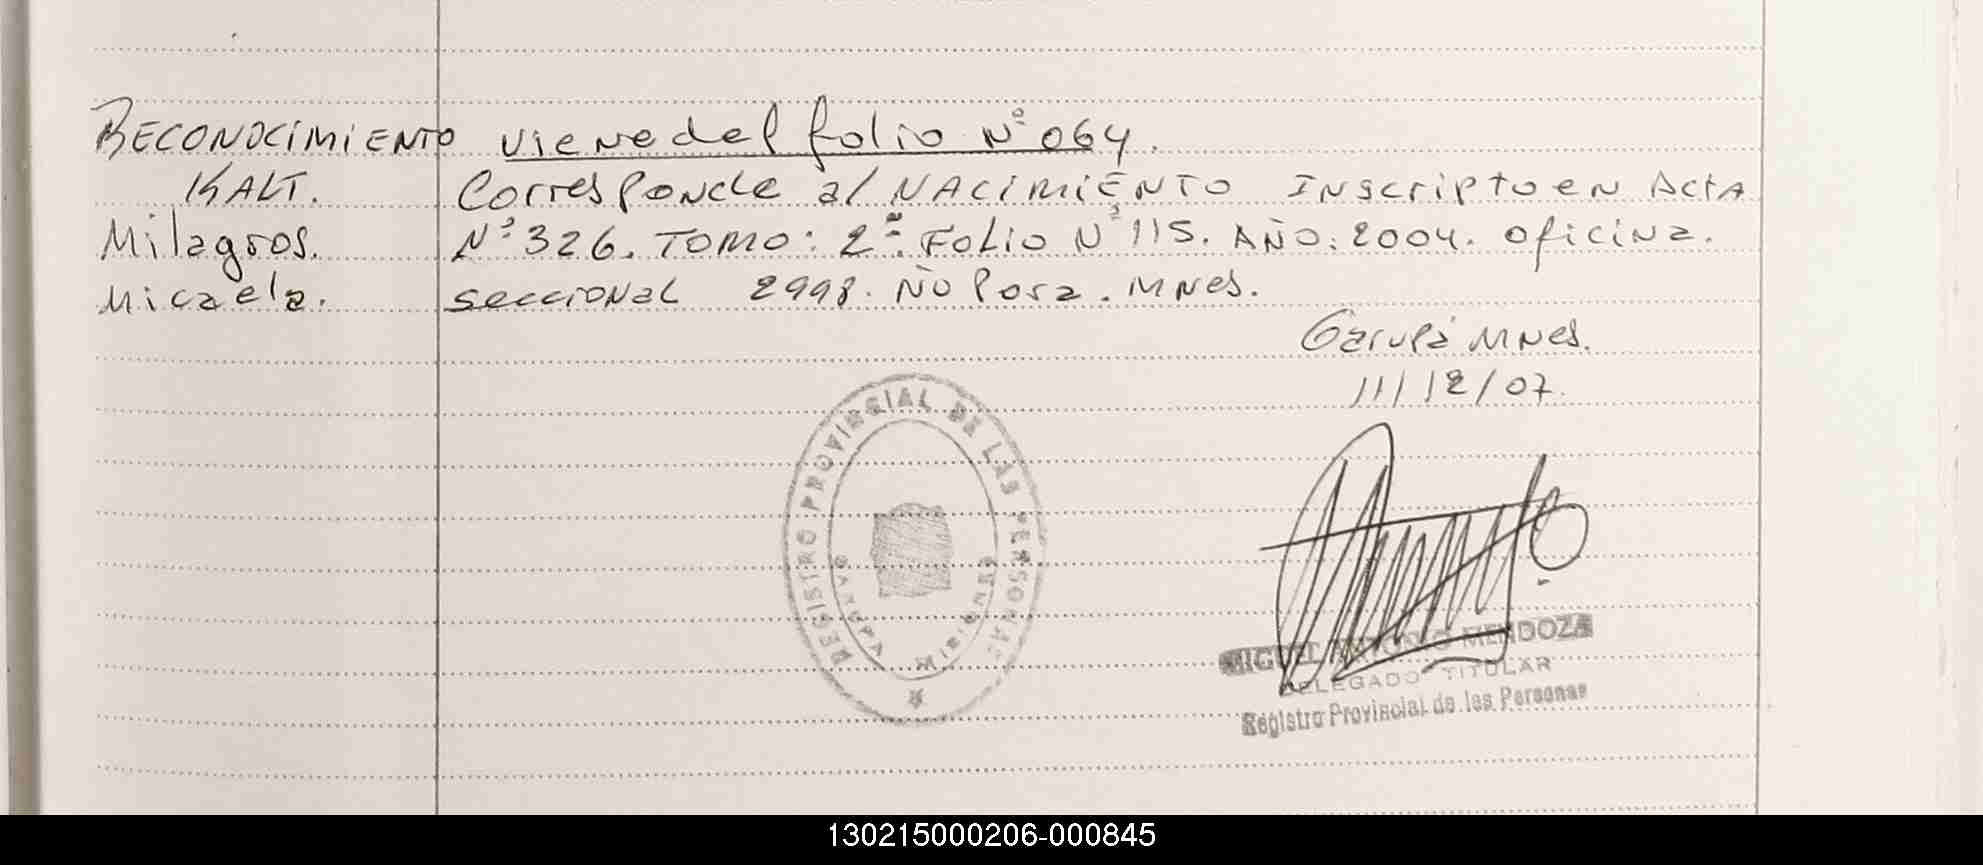 RECONOCIMIENTO viene del folio Nº 064.
KALT. Corresponde al NACIMIENTO INscripto en ActA
Milagros. Nº 326. TOMO: 2º. FOLIO Nº 115. AÑO: 2004. oficina.
Micaela. seccional 2998. ÑO Pora. MNes.
Garupá MNes.
11/12/07.
REGISTRO PROVINCIAL DE LAS PERSONAS
GARUPA
Misiones
MIGUEL ANTONIO MENDOZA
DELEGADO TITULAR
Registro Provincial de las Personas
130215000206-000845